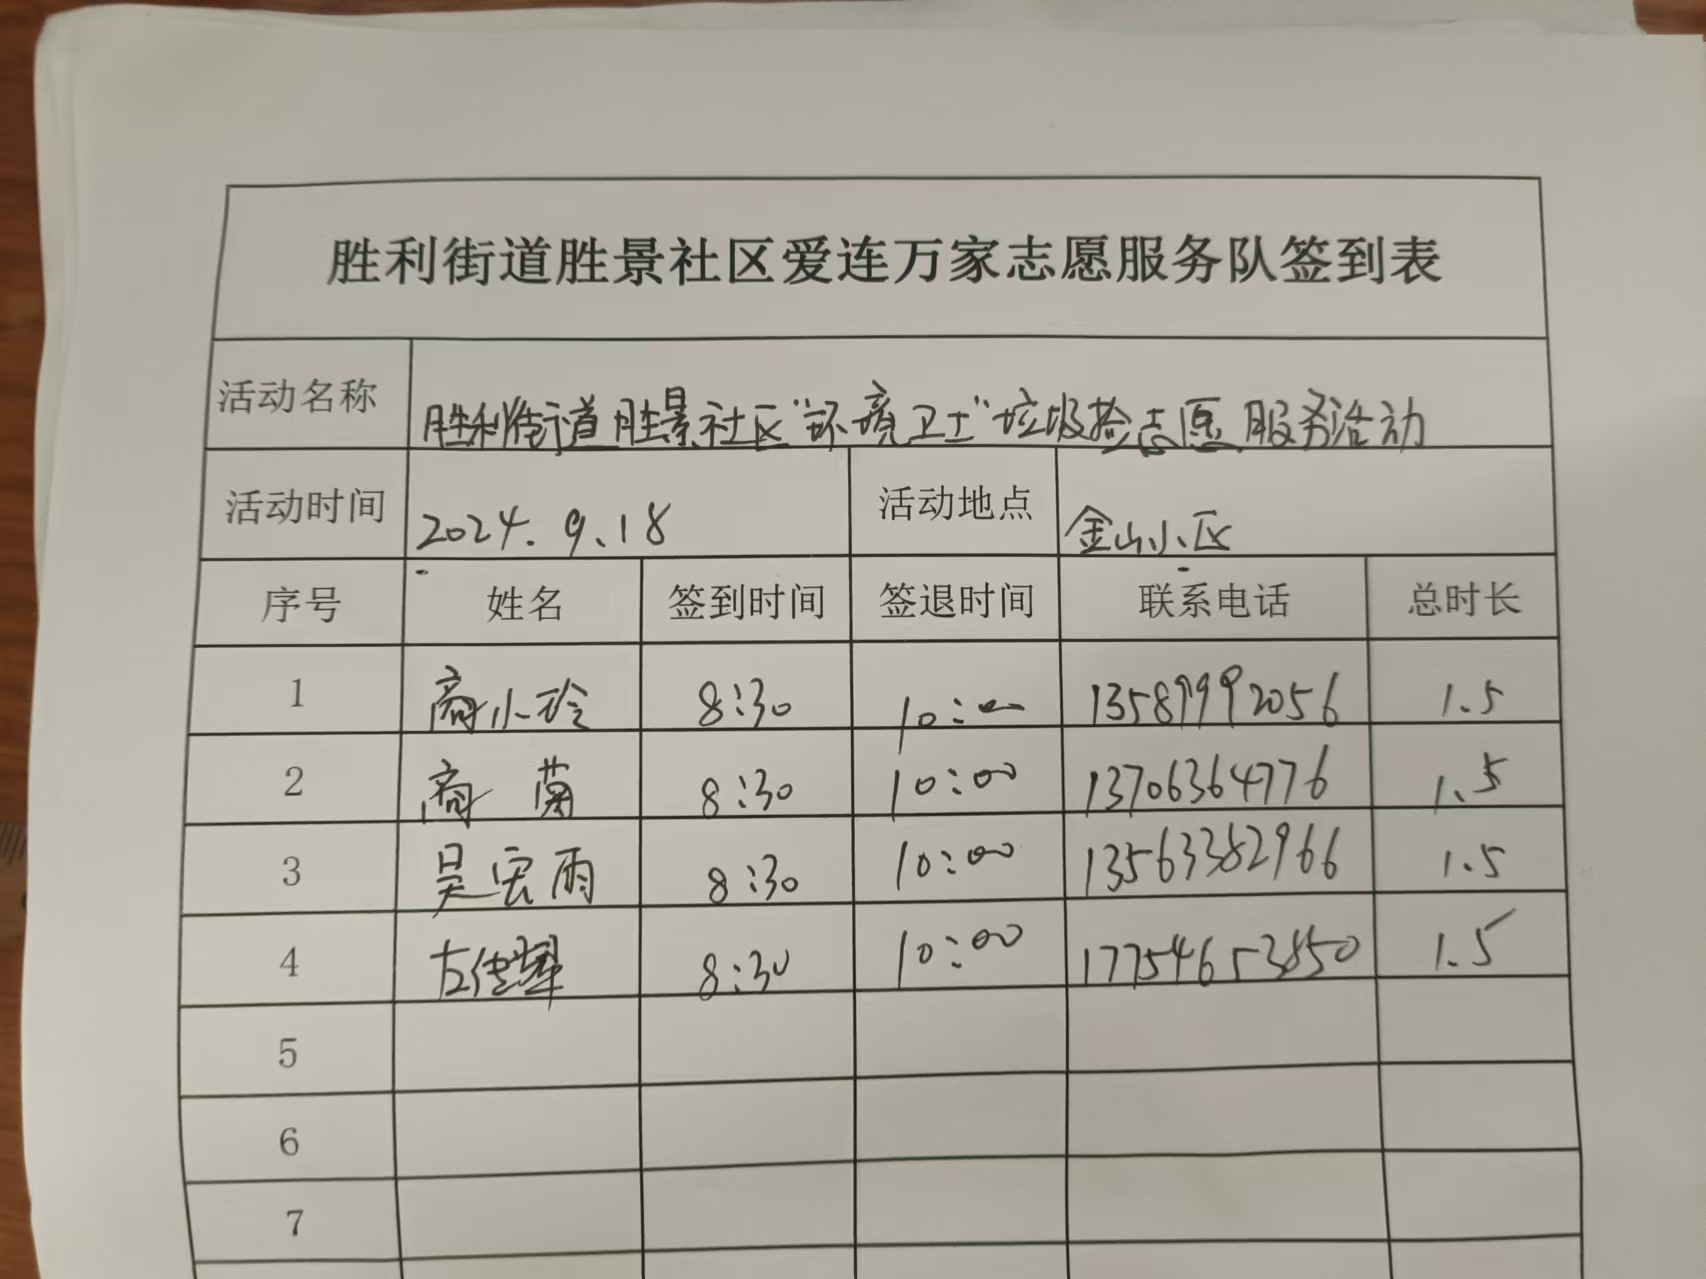 胜利街道胜景社区爱连万家志愿服务队签到表
活动名称 胜利街道胜景社区"环境卫士"垃圾捡志愿服务活动
活动时间 2024.9.18 活动地点 金山小区
序号 姓名 签到时间 签退时间 联系电话 总时长
1 商小玲 8:30 10:00 13589992056 1.5
2 商菊 8:30 10:00 13706364776 1.5
3 吴宪雨 8:30 10:00 13563382966 1.5
4 左传 8:30 10:00 17754653850 1.5
5
6
7